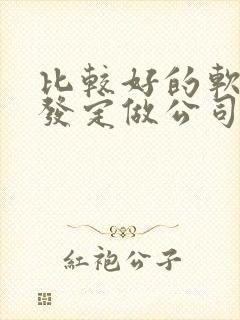 比較好的軟
發定做公司
紅袍公子